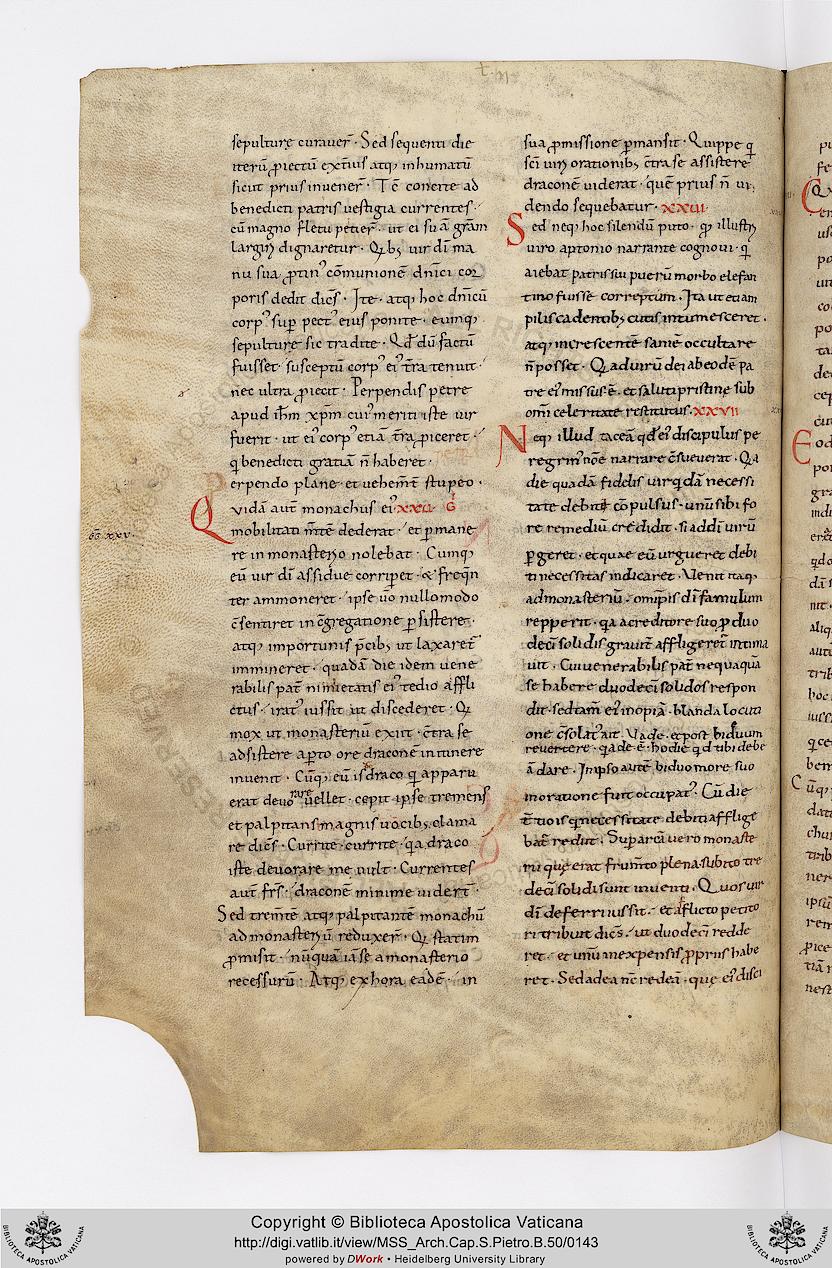 sepulturę curauer̄ · Sed sequenti die
iterū ꝓiectū extius atq; inhumatū
sicut prius inuener̄ · Tē concite ad
benedicti patris uestigia currentes ·
cū magno fletu petier̄ · ut ei suā grām
largiri dignaretur · Qḅs uir dī ma
nu sua ꝓtin' cōmunionē dnīci cor
poris dedit diēs · Ite · atq; hoc dnīcū
corp' sup̄ pect' eius ponite · eumq;
sepulturę sic tradite · Qd̄ dū factū
fuisset · susceptū corp' ei' t̄ra tenuit ·
nec ultra ꝓiecit · Perpendis petre
apud ih̄m xp̄m cui' meriti iste uir
fuerit · ut ei' corp' etiā t̄ra ꝓiceret ·
q̄ benedicti gratiā n̄ haberet ·
Perpendo plane · et uehem̄t stupeo ·
Quidā aut̄ monachus ei' xxv G̅
mobilitati m̄te dederat · et p̄mane
re in monasterio nolebat · Cumq;
eū uir dī assidue corripet · & freqn̄
ter ammoneret · ipse ūo nullomodo
c̄sentiret in c̄gregatione p̄sistere ·
atq; importunis p̄cib; ut laxaret̄
immineret · quadā die idem uene
rabilis pat̄ nimietatis ei' tedio affli
ctus · irat' iussit ut discederet · Q̄
mox ut monasteriū exiit · c̄tra se
adsistere ap̄to ore draconē in itinere
inuenit · Cūq; eū is draco q̄ apparu
erat deuorare uellet · cepit ipse tremens
et palpitans magnis uocib; clama
re diēs · Currite · currite · q̄a draco
iste deuorare me uult · Currentes
aut̄ fr̄s · draconē minime uidert̄ ·
Sed trem̄te atq; palpitantē monachū
ad monasteriū reduxer̄ · Q̄ statim
ꝓmisit · nūquā iā se a monasterio
recessurū · Atq; ex hora eadē · in
sua ꝓmissione p̄mansit · Quippe q̄
sc̄i uiri orationib; c̄tra se assistere
draconē uiderat · quē prius n̄ ui
dendo sequebatur · xxvi
Sed neq; hoc silendū puto · q̄ illustri
uiro aptonio narrante cognoui · q̄
aiebat patris sui puerū morbo elefan
tino fuisse correptum · Ita ut etiam
pilis cadentib; cutis intumesceret ·
atq; increscentē saniē occultare
n̄ posset · Q̄ ad uirū dei ab eodē pa
tre ei' missus ē · et saluti pristinę sub
om̄i celeritate restitutus · xxvii
Neq; illud taceā qd̄ ei' discipulus pe
regrin' nōe narrare c̄sueuerat · Q̄a
die quadā fidelis uir q̄dā necessi
tate debiti cōpulsus · unū sibi fo
re remediū credidit · si ad dī uirū
p̄geret · et quae eū urgueret debi
ti necessitas indicaret · Venit itaq;
ad monasteriū · omīpis dī famulum
repperit · q̄a creditore suo ꝓ duo
decī solidis grauit̄ affligeret̄ intima
uit · Cui uenerabilis pat̄ nequaquā
se habere duodecī solidos respon
dit · sed tam̄ ei' inopiā · blanda locuti
one c̄solat' ait · Vade · et post biduum
reuertere · q̄a deē · hodie qd̄ tibi debe
ā dare · In ipso autē biduo more suo
in oratione fuit occupat' · Cū die
t̄tio is q̄ necessitate debiti afflige
bat̄ rediit · Sup̄ arcā uero monaste
rii quę erat frum̄to plena · subito tre
decī solidi sunt inuenti · Quos uir
dī deferri iussit · et afflicto petito
ri tribuit diēs · ut duodecī redde
ret · et unū in expensis ꝓpriis habe
ret · Sed ad ea nc̄ redeā · quę ei' disci
Copyright © Biblioteca Apostolica Vaticana
http://digi.vatlib.it/view/MSS_Arch.Cap.S.Pietro.B.50/0143
powered by DWork • Heidelberg University Library
BIBLIOTECA APOSTOLICA VATICANA
BIBLIOTECA APOSTOLICA VATICANA